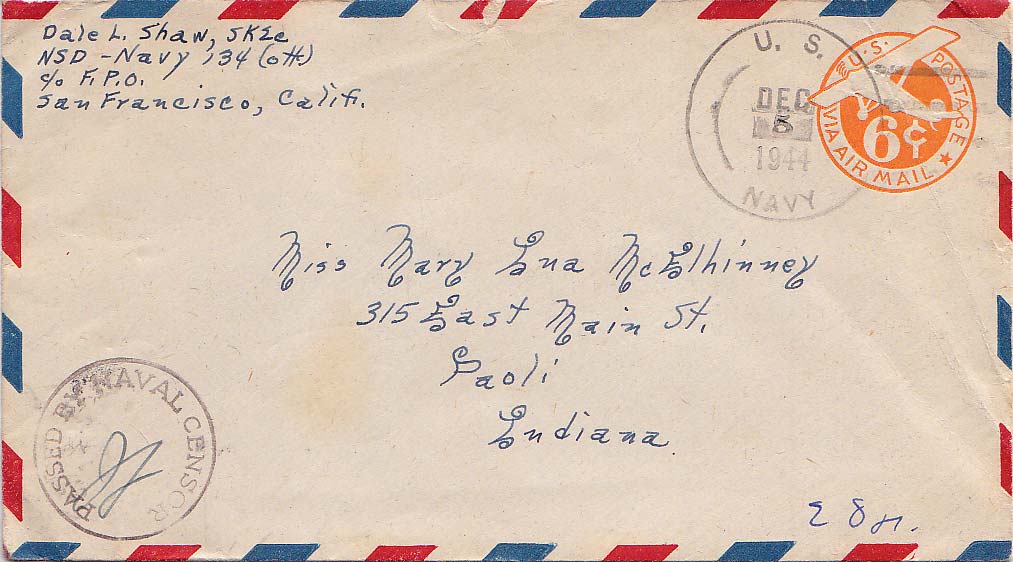 Dale L. Shaw, SK2c
NSD - Navy 134 (off)
c/o F.P.O.
San Francisco, Calif.
U. S.
DEC
5
1944
NAVY
U.S. POSTAGE
6¢
VIA AIR MAIL
Miss Mary Lua McElhinney
315 East Main St.
Paoli
Indiana
PASSED BY NAVAL CENSOR